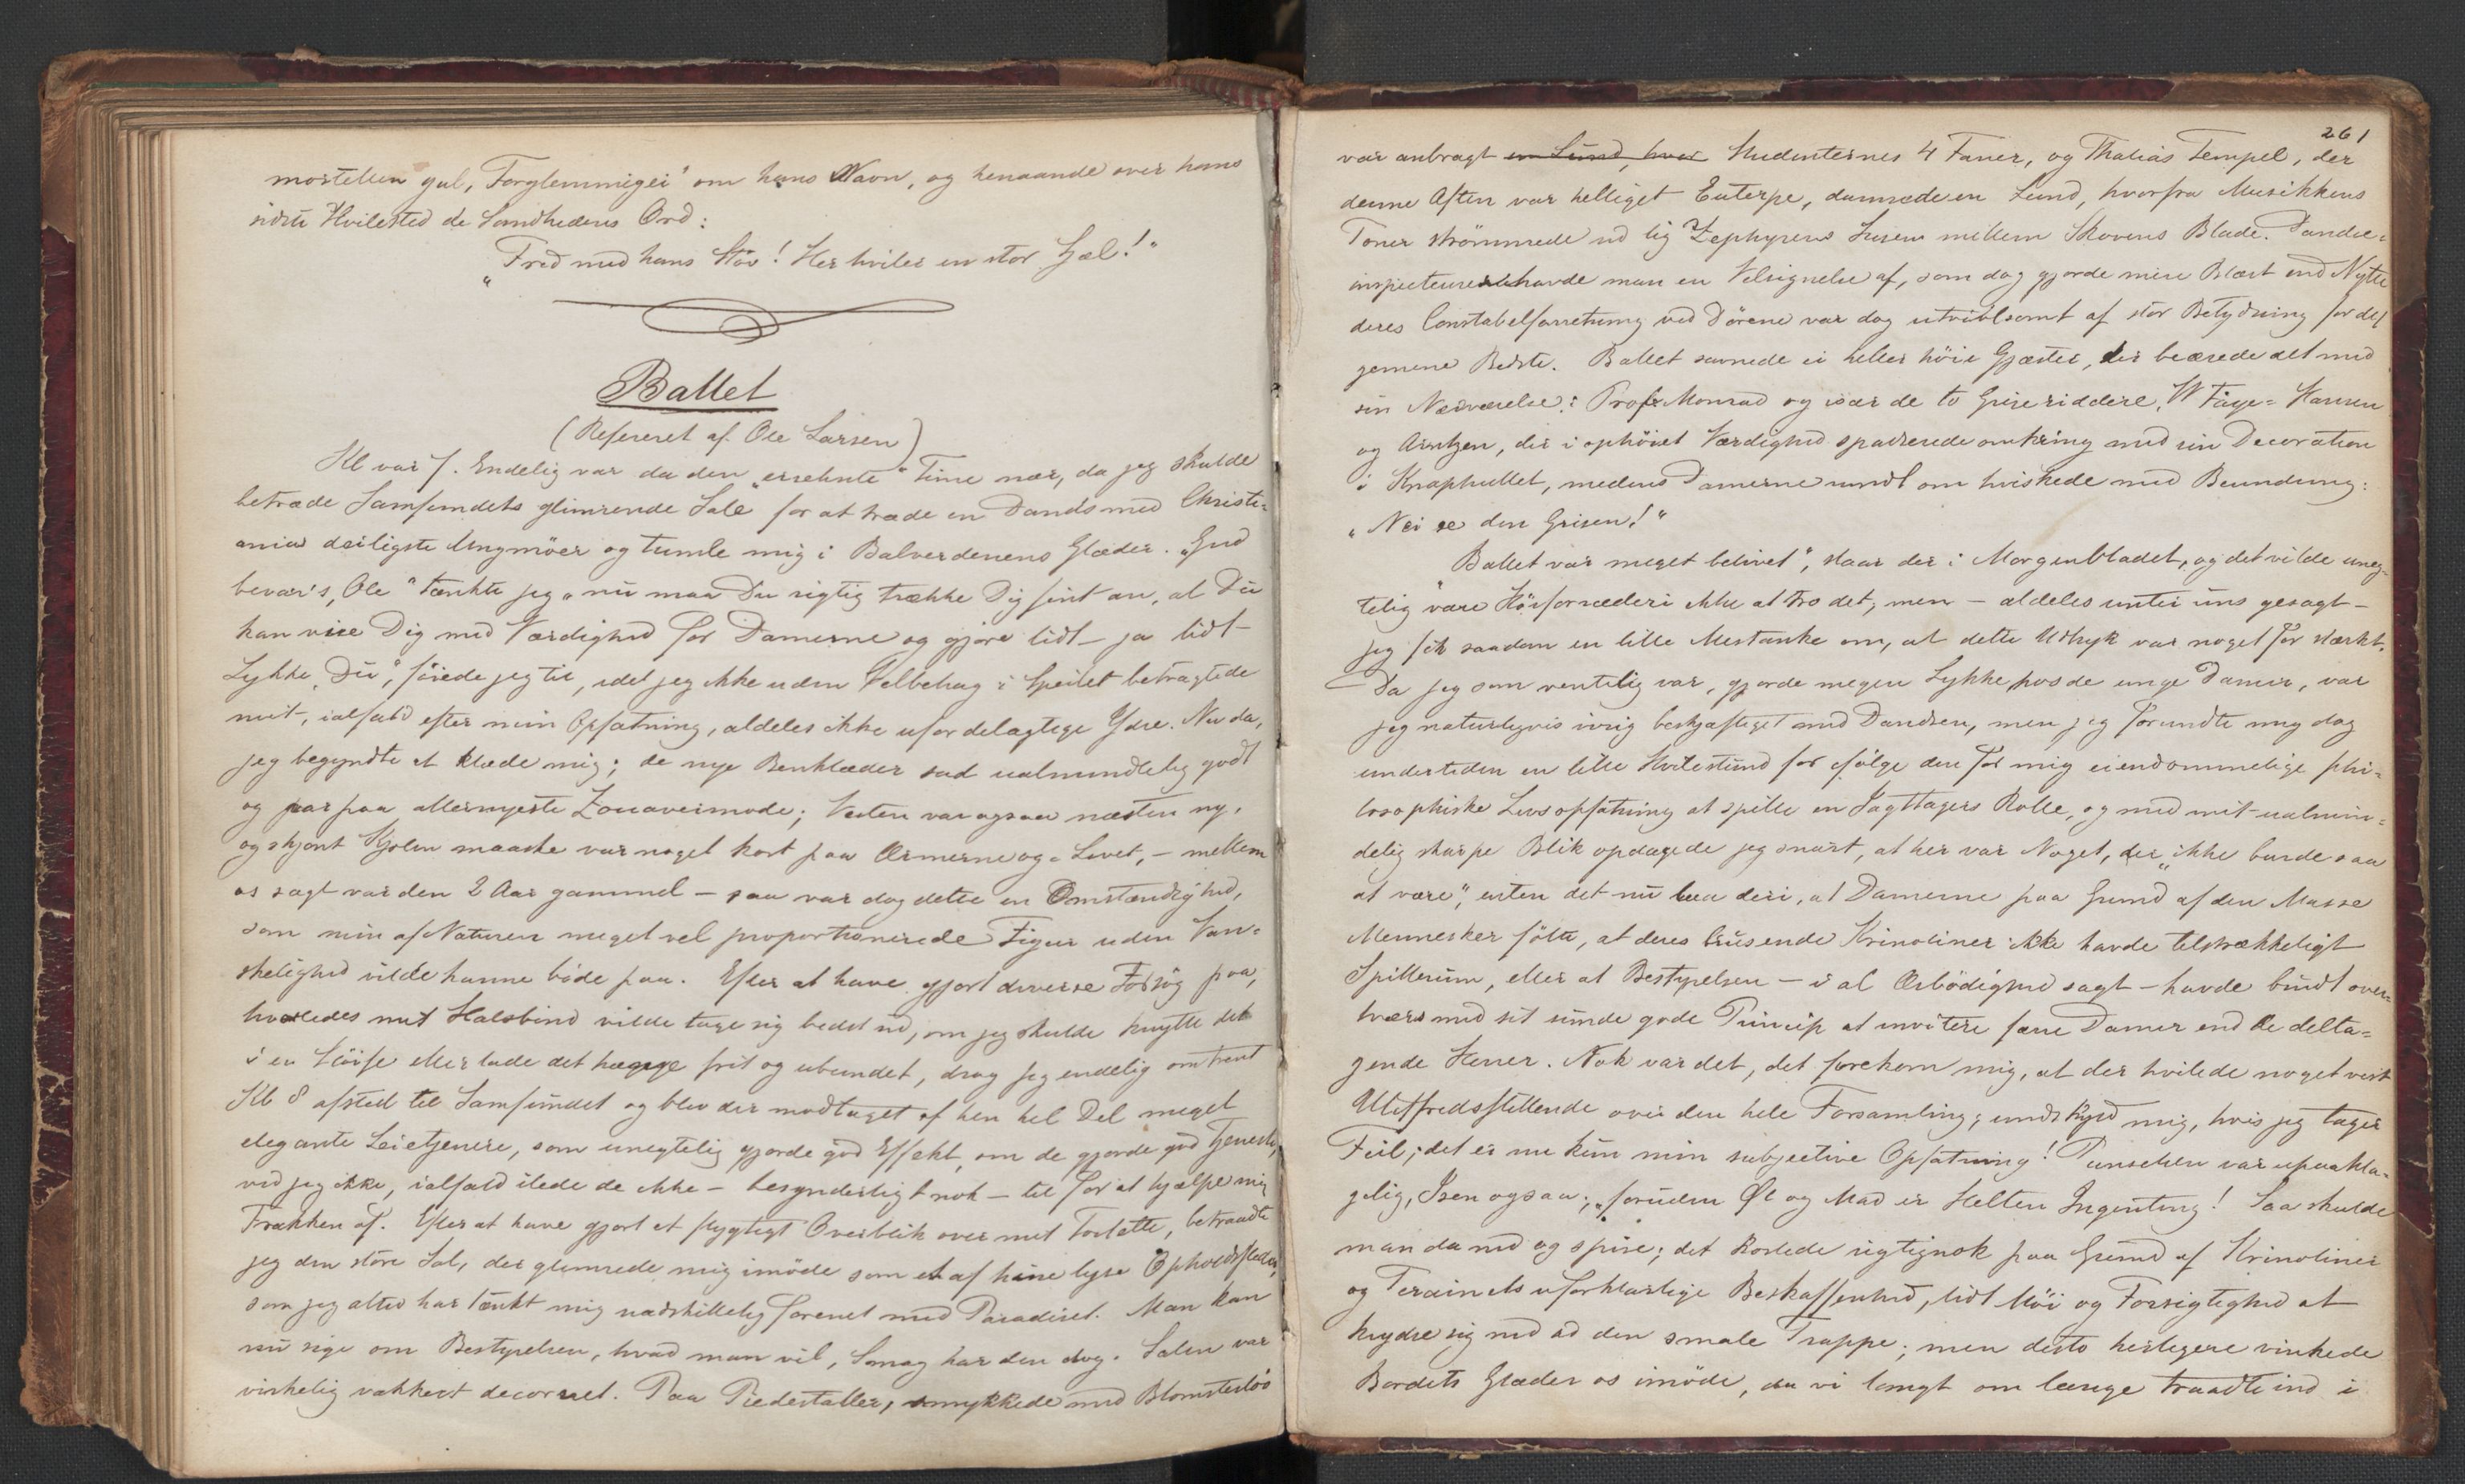 mostellen gul, Forglemmigei" om hans Navn, og henaande over hans
sidste Hvilested de Sandhedens Ord:
"Fred med hans Støv! Her hviler en stor Sjæl!"
Ballet
(Refereret af Ole Larsen)
Kl var 7. Endelig var da den "ersehnte" Time nær, da jeg skulde
betræde Samfundets glimrende Sale for at træde en Dands med Christi=
anias deiligste Ungmøer og tumle mig i Balverdenens Glæder. "Gud
bevar's, Ole" tænkte jeg "nu maa Du rigtig trække Dig fint an, at Du
kan vise Dig med Værdighed for Damerne og gjøre lidt - ja lidt -
Lykke, Du", føiede jeg til, idet jeg ikke uden Velbehag i Speilet betragtede
mit, ialfald efter min Opfatning, aldeles ikke ufordelagtige Ydre. Nu da,
jeg begyndte at klæde mig; de nye Benklæder sad ualmindelig godt
og var paa allernyeste Zouavermode; Vesten var ogsaa næsten ny,
og skjønt Kjolen maaske var noget kort paa Ærmerne og Livet, - mellem
os sagt var den 2 Aar gammel - saa var dog dette en Omstændighed,
som min af Naturen meget vel proportionerede Figur uden Van=
skelighed vilde kunne bøde paa. Efter at have gjort diverse Forsøg paa,
hvorledes mit Halsbind vilde tage sig bedst ud, om jeg skulde knytte det
i en Sløife eller lade det hænge frit og ubundet, drog jeg endelig omtrent
Kl 8 afsted til Samfundet og blev der modtaget af hen hel Del meget
elegante Leietjenere, som unegtelig gjorde god Effekt, om de gjorde god Tjeneste,
ved jeg ikke, ialfald ilede de ikke - besynderligt nok - til for at hjælpe mig
Frakken af. Efter at have gjort et flygtigt Overblik over mit Toilette, betraadte
jeg den store Sal, der glimrede mig imøde som et af hine lyse Opholdssteder,
som jeg altid har tænkt mig uadskillelig forenet med Paradiset. Man kan
nu sige om Bestyrelsen, hvad man vil, Smag har den dog. Salen var
virkelig vakkert decoreret. Paa Piedestaller, smykkede med Blomsterløv
261
var anbragt en Lund, hvor Studenternes 4 Faner, og Thalias Tempel, der
denne Aften var helliget Euterpe, dannede en Lund, hvorfra Musikkens
Toner strömmede ud lig Zephyrens Susen mellem Skovens Blade. Dandse=
inspecteurer havde man en Velsignelse af, som dog gjorde mere Blæst end Nytte
deres Constabelforretning ved Dörene var dog utvivlsomt af stor Betydning for det
gemene Bedste. Ballet savnede ei heller höie Gjæster, der beærede det med
sin Nærværelse: Prof. Monrad og især de to Griseriddere, W Faye=Hansen
og Arntzen, der i ophöiet Værdighed spadserede omkring med sin Decoration
i Knaphullet, medens Damerne rundt om hviskede med Beundring:
"Nei se den Grisen!"
"Ballet var meget belivet", staar der i Morgenbladet, og det vilde uneg=
telig være Höiforræderi ikke at tro det, men - aldeles unter uns gesagt -
jeg fik saadan en lille Mistanke om, at dette Udtryk var noget for stærkt.
- Da jeg som ventelig var, gjorde megen Lykke hos de unge Damer, var
jeg naturligvis ivrig beskjæftiget med Dandsen, men jeg forundte mig dog
undertiden en lille Hvilestund for ifölge den for mig eiendommelige phi=
losophiske Livsopfatning at spille en Iagttagers Rolle, og med mit ualmin=
delig skarpe Blik opdagede jeg snart, at her var Noget, der "ikke burde saa
at være", enten det nu laa deri, at Damerne paa Grund af den Masse
Mennesker fölte, at deres brusende Krinoliner ikke havde tilstrækkeligt
Spillerum, eller at Bestyrelsen - i al Ærbödighed sagt - havde budt over=
tværs med sit sunde gode Princip at invitere færre Damer end de delta=
gende Herrer. Nok var det, det forekom mig, at der hvilede noget vist
Utilfredsstillende over den hele Forsamling; undskyld mig, hvis jeg tager
Feil; det er nu kun min subjective Opfatning! Punschen var upaakla=
gelig, Isen ogsaa; "foruden Øl og Mad er Helten Ingenting! Saa skulde
man da ned og spise; det kostede rigtignok paa Grund af Krinoliner
og Terainets uforklarlige Beskaffenhed, lidt Möi og Forsigtighed at
krydse sig ned ad den smale Trappe; men desto herligere vinkede
Bordets Glæder os imöde, da vi langt om længe traadte ind i